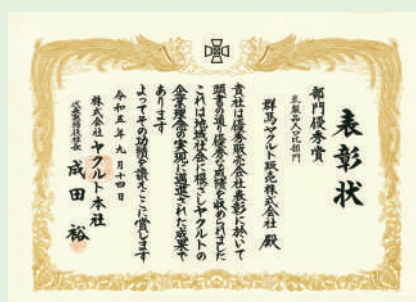 表彰状
部門優秀賞
乳製品人口比部門
群馬ヤクルト販売株式会社 殿
貴社は優秀販売会社表彰に於いて
頭書の通り優秀な成績を収められました
これは地域社会に根ざしヤクルトの
企業理念の実現に邁進された成果で
あります
よってその功績を讃えここに賞します
令和五年九月十四日
株式会社ヤクルト本社
代表取締役社長 成田 裕